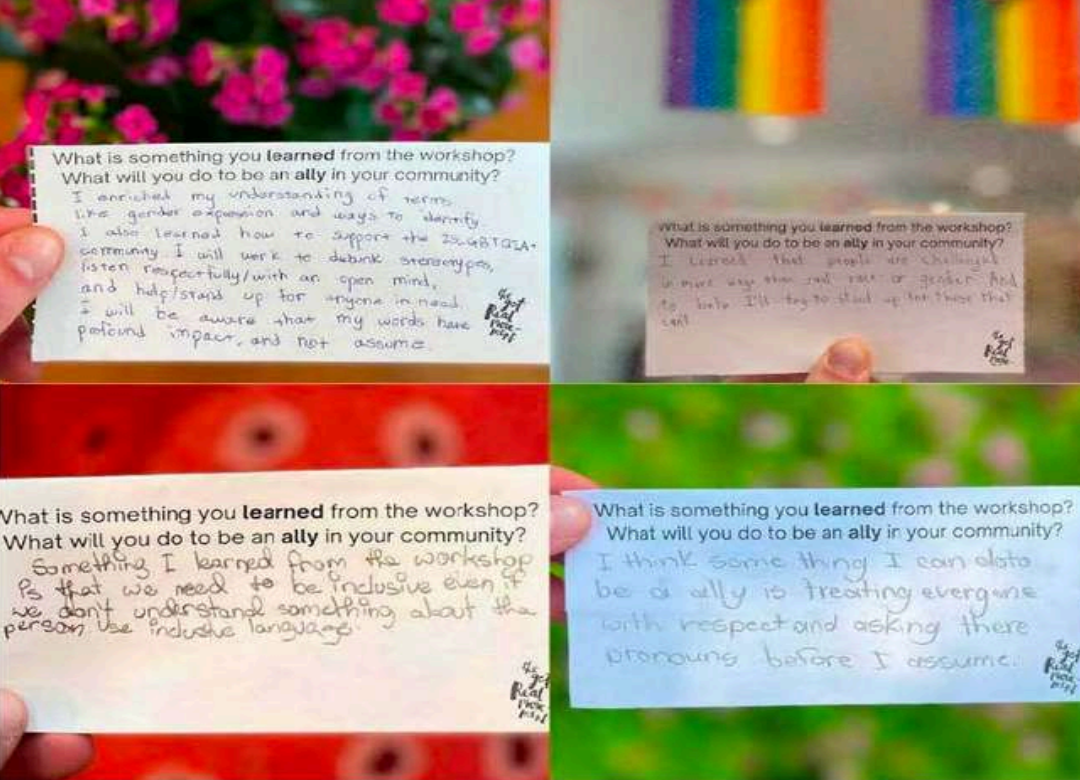 What is something you learned from the workshop?
What will you do to be an ally in your community?
I enriched my understanding of terms
like gender expression and ways to identify
I also learned how to support the 2SLGBTQIA+
community I will work to debunk stereotypes,
listen respectfully/with an open mind,
and help/stand up for anyone in need.
I will be aware that my words have
profound impact, and not assume.
the
get
Real
move-
ment
What is something you learned from the workshop?
What will you do to be an ally in your community?
I learned that people are challenged
in more ways than race or gender And
to help I'll try to stand up for those that
can't
the
get
Real
move-
What is something you learned from the workshop?
What will you do to be an ally in your community?
Something I learned from the workshop
is that we need to be inclusive even if
we don't understand something about the
person. Use inclusive language.
the
get
Real
move-
ment
What is something you learned from the workshop?
What will you do to be an ally in your community?
I think some thing I can doto
be a ally is treating everyone
with respect and asking there
pronouns before I assume.
the
get
Real
move-
ment